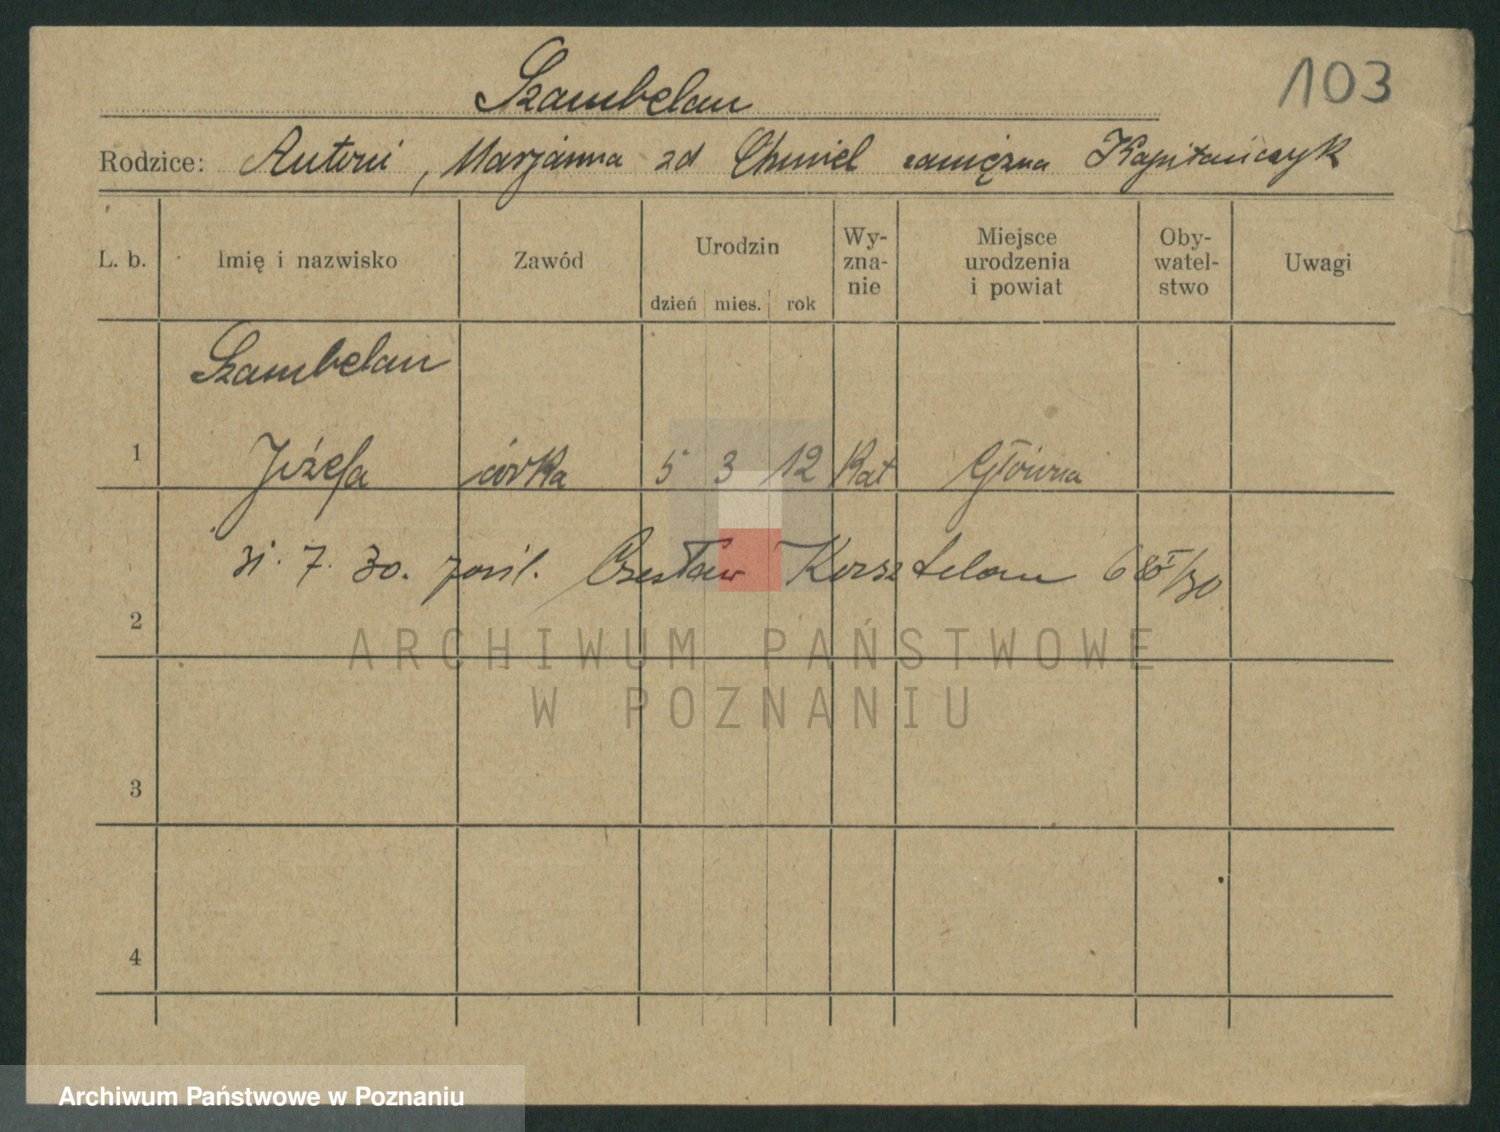 103
Szambelan
Rodzice: Antoni, Marjanna zd Chmiel zamężna Kapitańczyk
L. b. Imię i nazwisko Zawód Urodzin dzień mies. rok Wy-zna-nie Miejsce urodzenia i powiat Oby-watel-stwo Uwagi
Szambelan
1 Józefa córka 5 3 12 Kat Główna
31. 7. 30. pośl. Czesław Korsztelan
2
ARCHIWUM PAŃSTWOWE
W POZNANIU
3
4
Archiwum Państwowe w Poznaniu